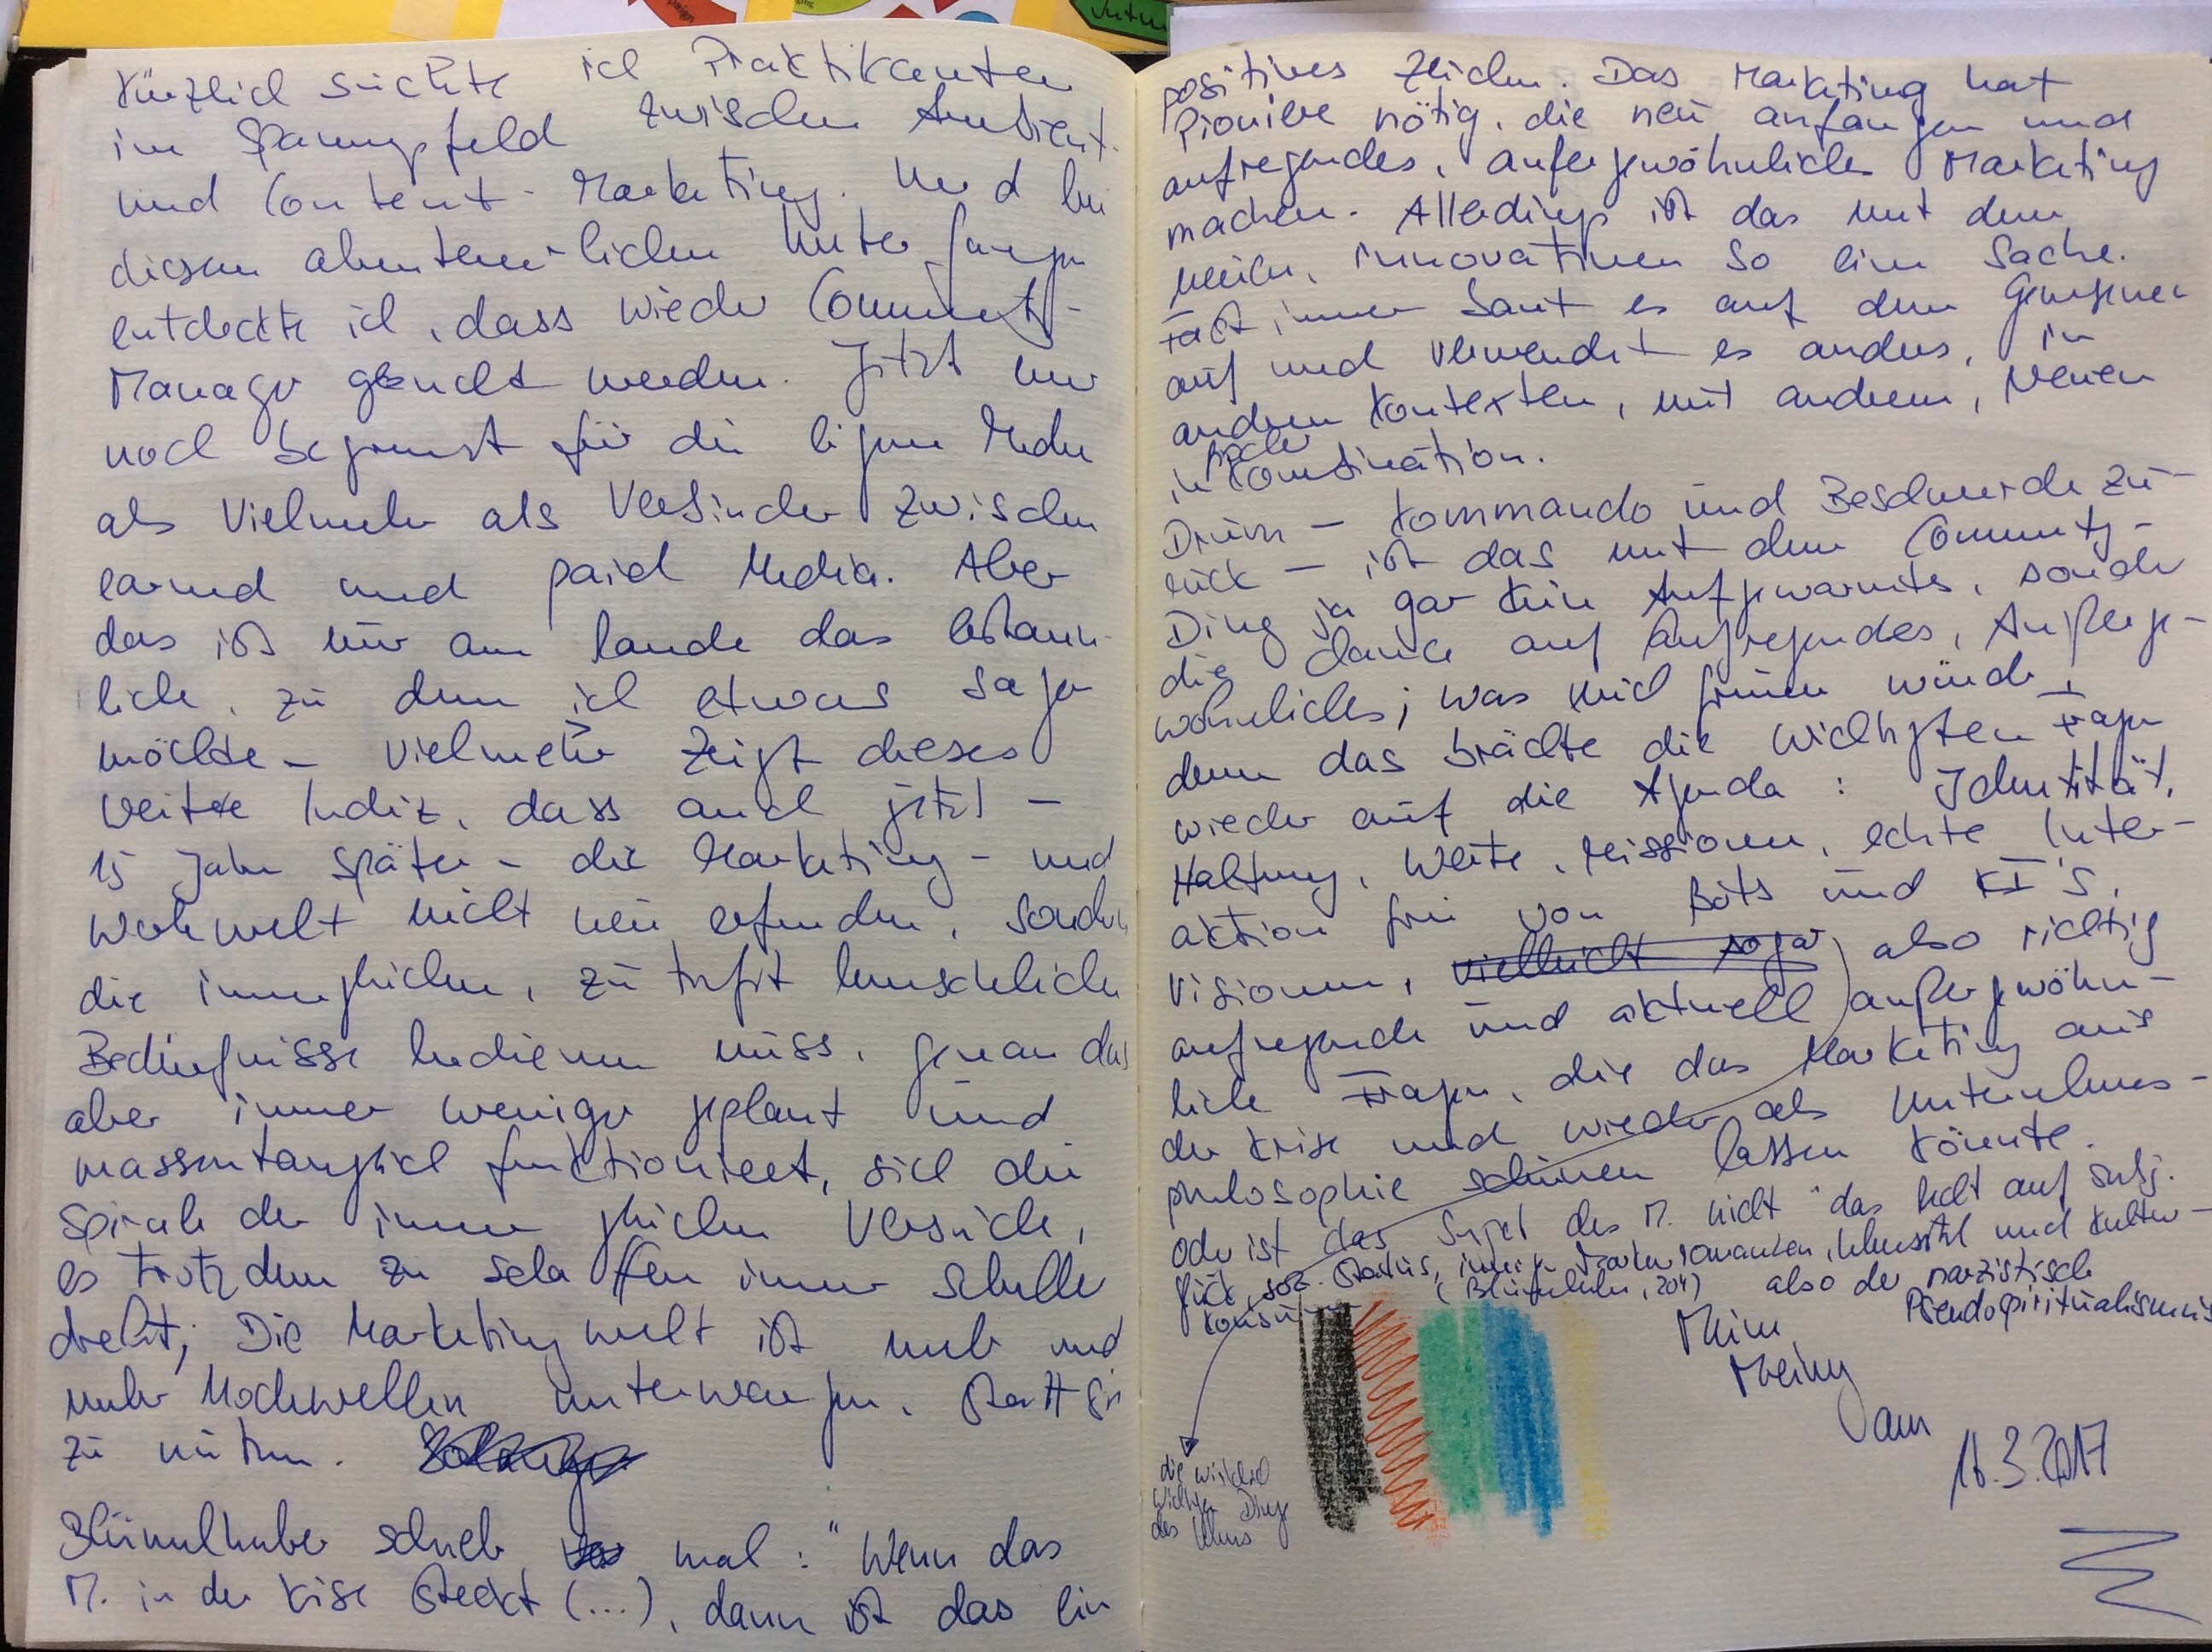 Kürzlich suchte ich Praktikanten
im Spannungsfeld zwischen Ambient-
und Content-Marketing. Und bei
diesem abenteuerlichen Unterfangen
entdeckte ich, dass wieder Community-
Manager gesucht werden. Jetzt nur
noch begrenzt für die eigene Media
als vielmehr als Verbinder zwischen
earned und paid Media. Aber
das ist nur am Rande das Erstaun-
liche, zu dem ich etwas sagen
möchte – vielmehr zeigt dieses
weitere Indiz, dass auch jetzt –
15 Jahre später – die Marketing- und
Werbewelt nicht neu erfunden, sondern
die immergleichen, zu tiefst menschlichen
Bedürfnisse bedienen muss, genau das
aber immer weniger geplant und
massentauglich funktioniert, sich die
Spirale der immer gleichen Versuche,
es trotzdem zu schaffen immer schneller
dreht; Die Marketingwelt ist mehr und
mehr Modewellen unterworfen, statt sie
zu nutzen.
Blümelhuber schrieb mal: "Wenn das
M. in der Krise steckt (...), dann ist das ein
positives Zeichen. Das Marketing hat
Pioniere nötig, die neu anfangen und
aufregendes, außergewöhnliches Marketing
machen. Allerdings ist das mit dem
neuen, innovativen so eine Sache.
Fast immer baut es auf dem Gewesenen
auf und verwendet es anders, in
anderen Kontexten, mit anderem, Neuen
in Kombination.
Drum – Kommando und Beschwerde zu-
rück – ist das mit dem Community-
Ding ja gar kein Aufgewärmtes, sonder
die Chance auf Aufregendes, Außerge-
wöhnliches; was mich freuen würde,
denn das brächte die wichtigsten Fragen
wieder auf die Agenda: Identität,
Haltung, Werte, Missionen, echte Inter-
aktion frei von Bots und KI's,
Visionen, vielleicht sogar also richtig
aufregende und aktuell außergewöhn-
liche Fragen, die das Marketing aus
der Krise und wieder als Unternehmens-
philosophie scheinen lassen könnte.
Oder ist das Sujet des M. nicht "das Recht auf subj.
Glück, soz. Status, Markenromanzen, Lebensstil und Kultur-
konsum (Blümelhuber, 2011) also der narzistische
Pseudospiritualismus
Meine
Meinung
vom
16.3.2017
die wirklich
wichtigen Dinge
des Lebens